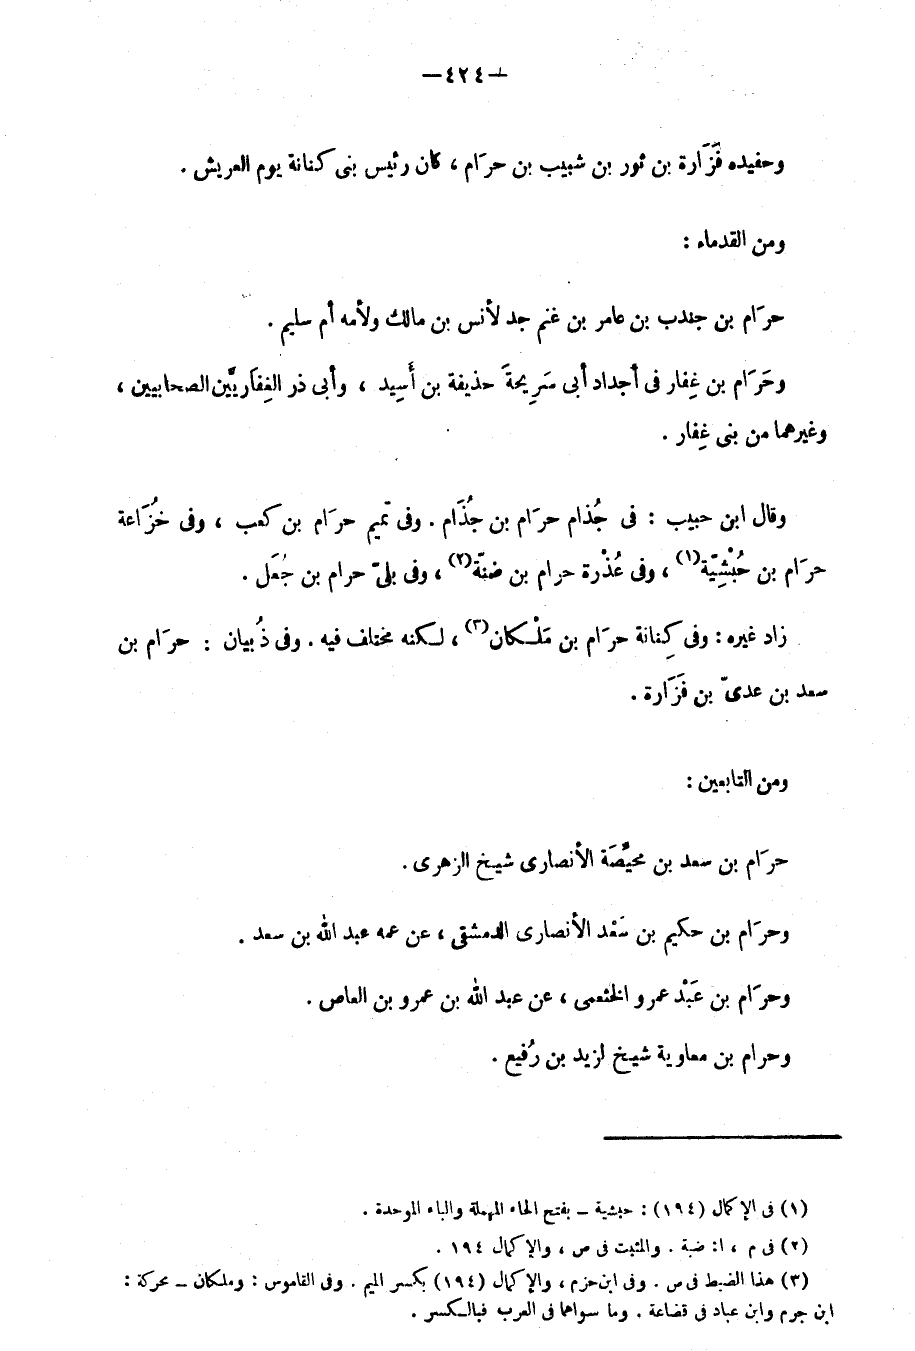 —٤٢٤—
وحفيده فَزَارة بن ثور بن شبيب بن حرَام ، كان رئيس بنى كنانة يوم العريش .
ومن القدماء :
حرَام بن جندب بن عامر بن غنم جد لأنس بن مالك ولأمه أم سليم .
وحَرَام بن غِفار فى أجداد أبى سَرِيحَةَ حذيفة بن أَسِيد ، وأبى ذر الغِفاَريَّين الصحابيين ،
وغيرهما من بنى غِفار .
وقال ابن حبيب : فى جُذام حرَام بن جُذَام . وفى تميم حرَام بن كعب ، وفى خُزَاعة
حرَام بن حُبْشِيّة(١) ، وفى عُذْرة حرام بن ضنّة(٢) ، وفى بلىّ حرام بن جُعَل .
زاد غيره : وفى كِنانة حرَام بن مَلْكان(٣) ، لكنه مختلف فيه . وفى ذُبيان : حرَام بن
سعد بن عدىّ بن فَزَارة .
ومن التابعين :
حرَام بن سعد بن محيَّصَة الأنصارى شيخ الزهرى .
وحرَام بن حكيم بن سَعْد الأنصارى الدمشقى ، عن عمه عبد الله بن سعد .
وحرَام بن عَبْد عمرو الخثعمى ، عن عبد الله بن عمرو بن العاص .
وحرام بن معاوية شيخ لزيد بن رُفيع .
(١) فى الإكمال (١٩٤) : حبشية – بفتح الحاء المهملة والباء الموحدة .
(٢) فى م ، ا : ضبة . والمثبت فى س ، والإكمال ١٩٤ .
(٣) هذا الضبط فى س . وفى ابن حزم ، والإكمال (١٩٤) بكسر الميم . وفى القاموس : وملكان – محركة :
ابن جرم وابن عباد فى قضاعة . وما سواهما فى العرب فبالكسر .